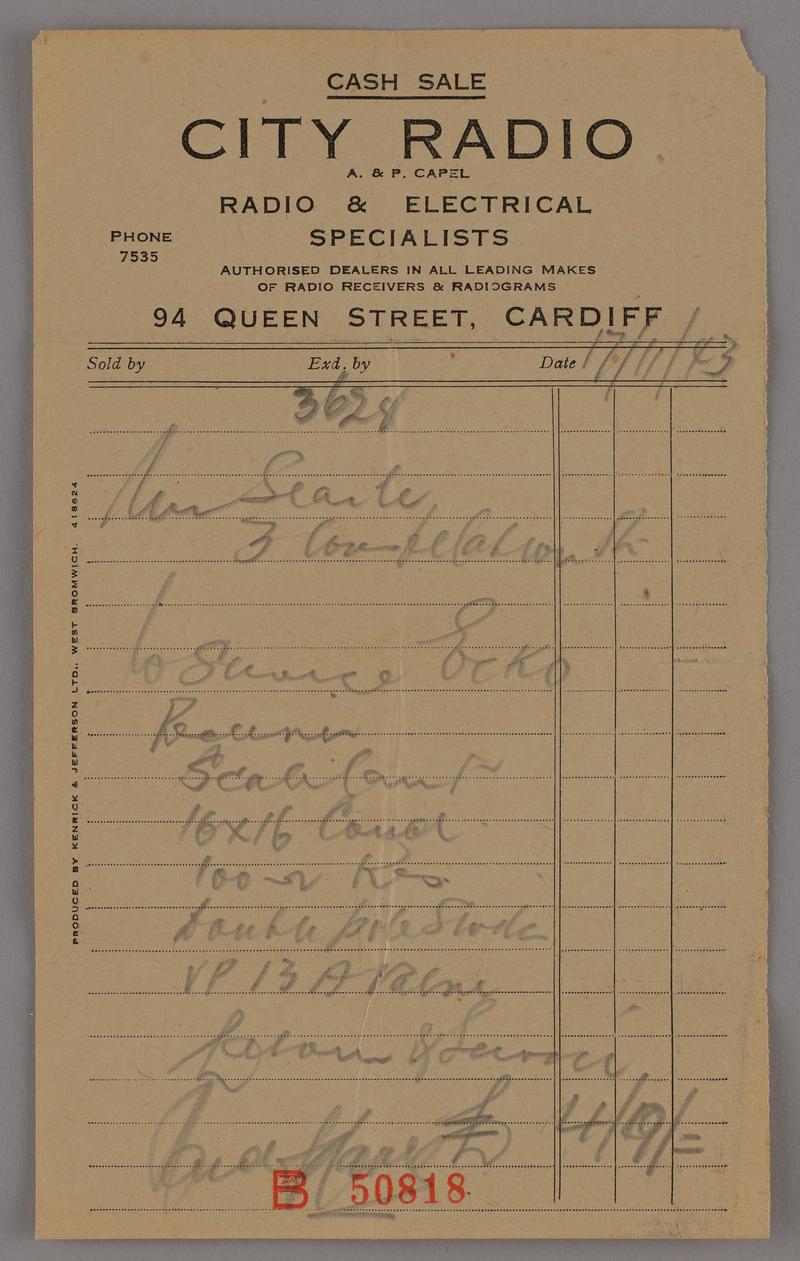 CASH SALE
CITY RADIO
A. & P. CAPEL
RADIO & ELECTRICAL
PHONE SPECIALISTS
7535
AUTHORISED DEALERS IN ALL LEADING MAKES
OF RADIO RECEIVERS & RADIOGRAMS
94 QUEEN STREET, CARDIFF
Sold by Exd. by Date 17/11/43
3624
Searle,
3 Constellation St
To Service Ecko
Receiver
Scale Lamp
16x16 Cond
100 Res
Double pole
VP 13 A Valve
Labour & Service
£4/19/=
B 50818
PRODUCED BY KENRICK & JEFFERSON LTD., WEST BROMWICH. 418624